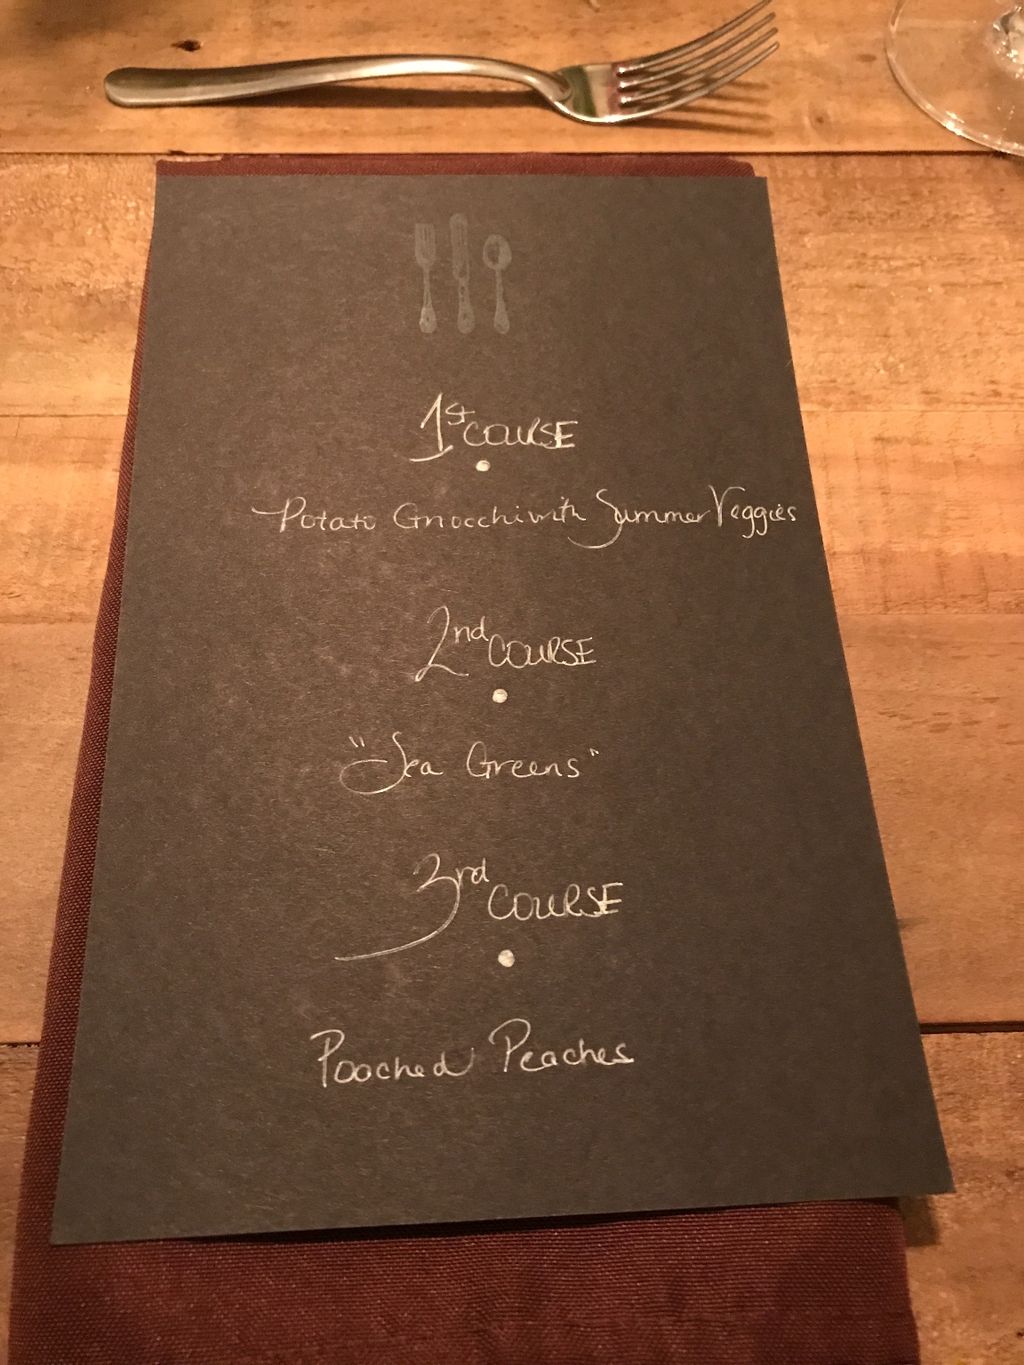 1st COURSE
Potato Gnocchi with Summer Veggies
2nd COURSE
"Sea Greens"
3rd COURSE
Pooched Peaches